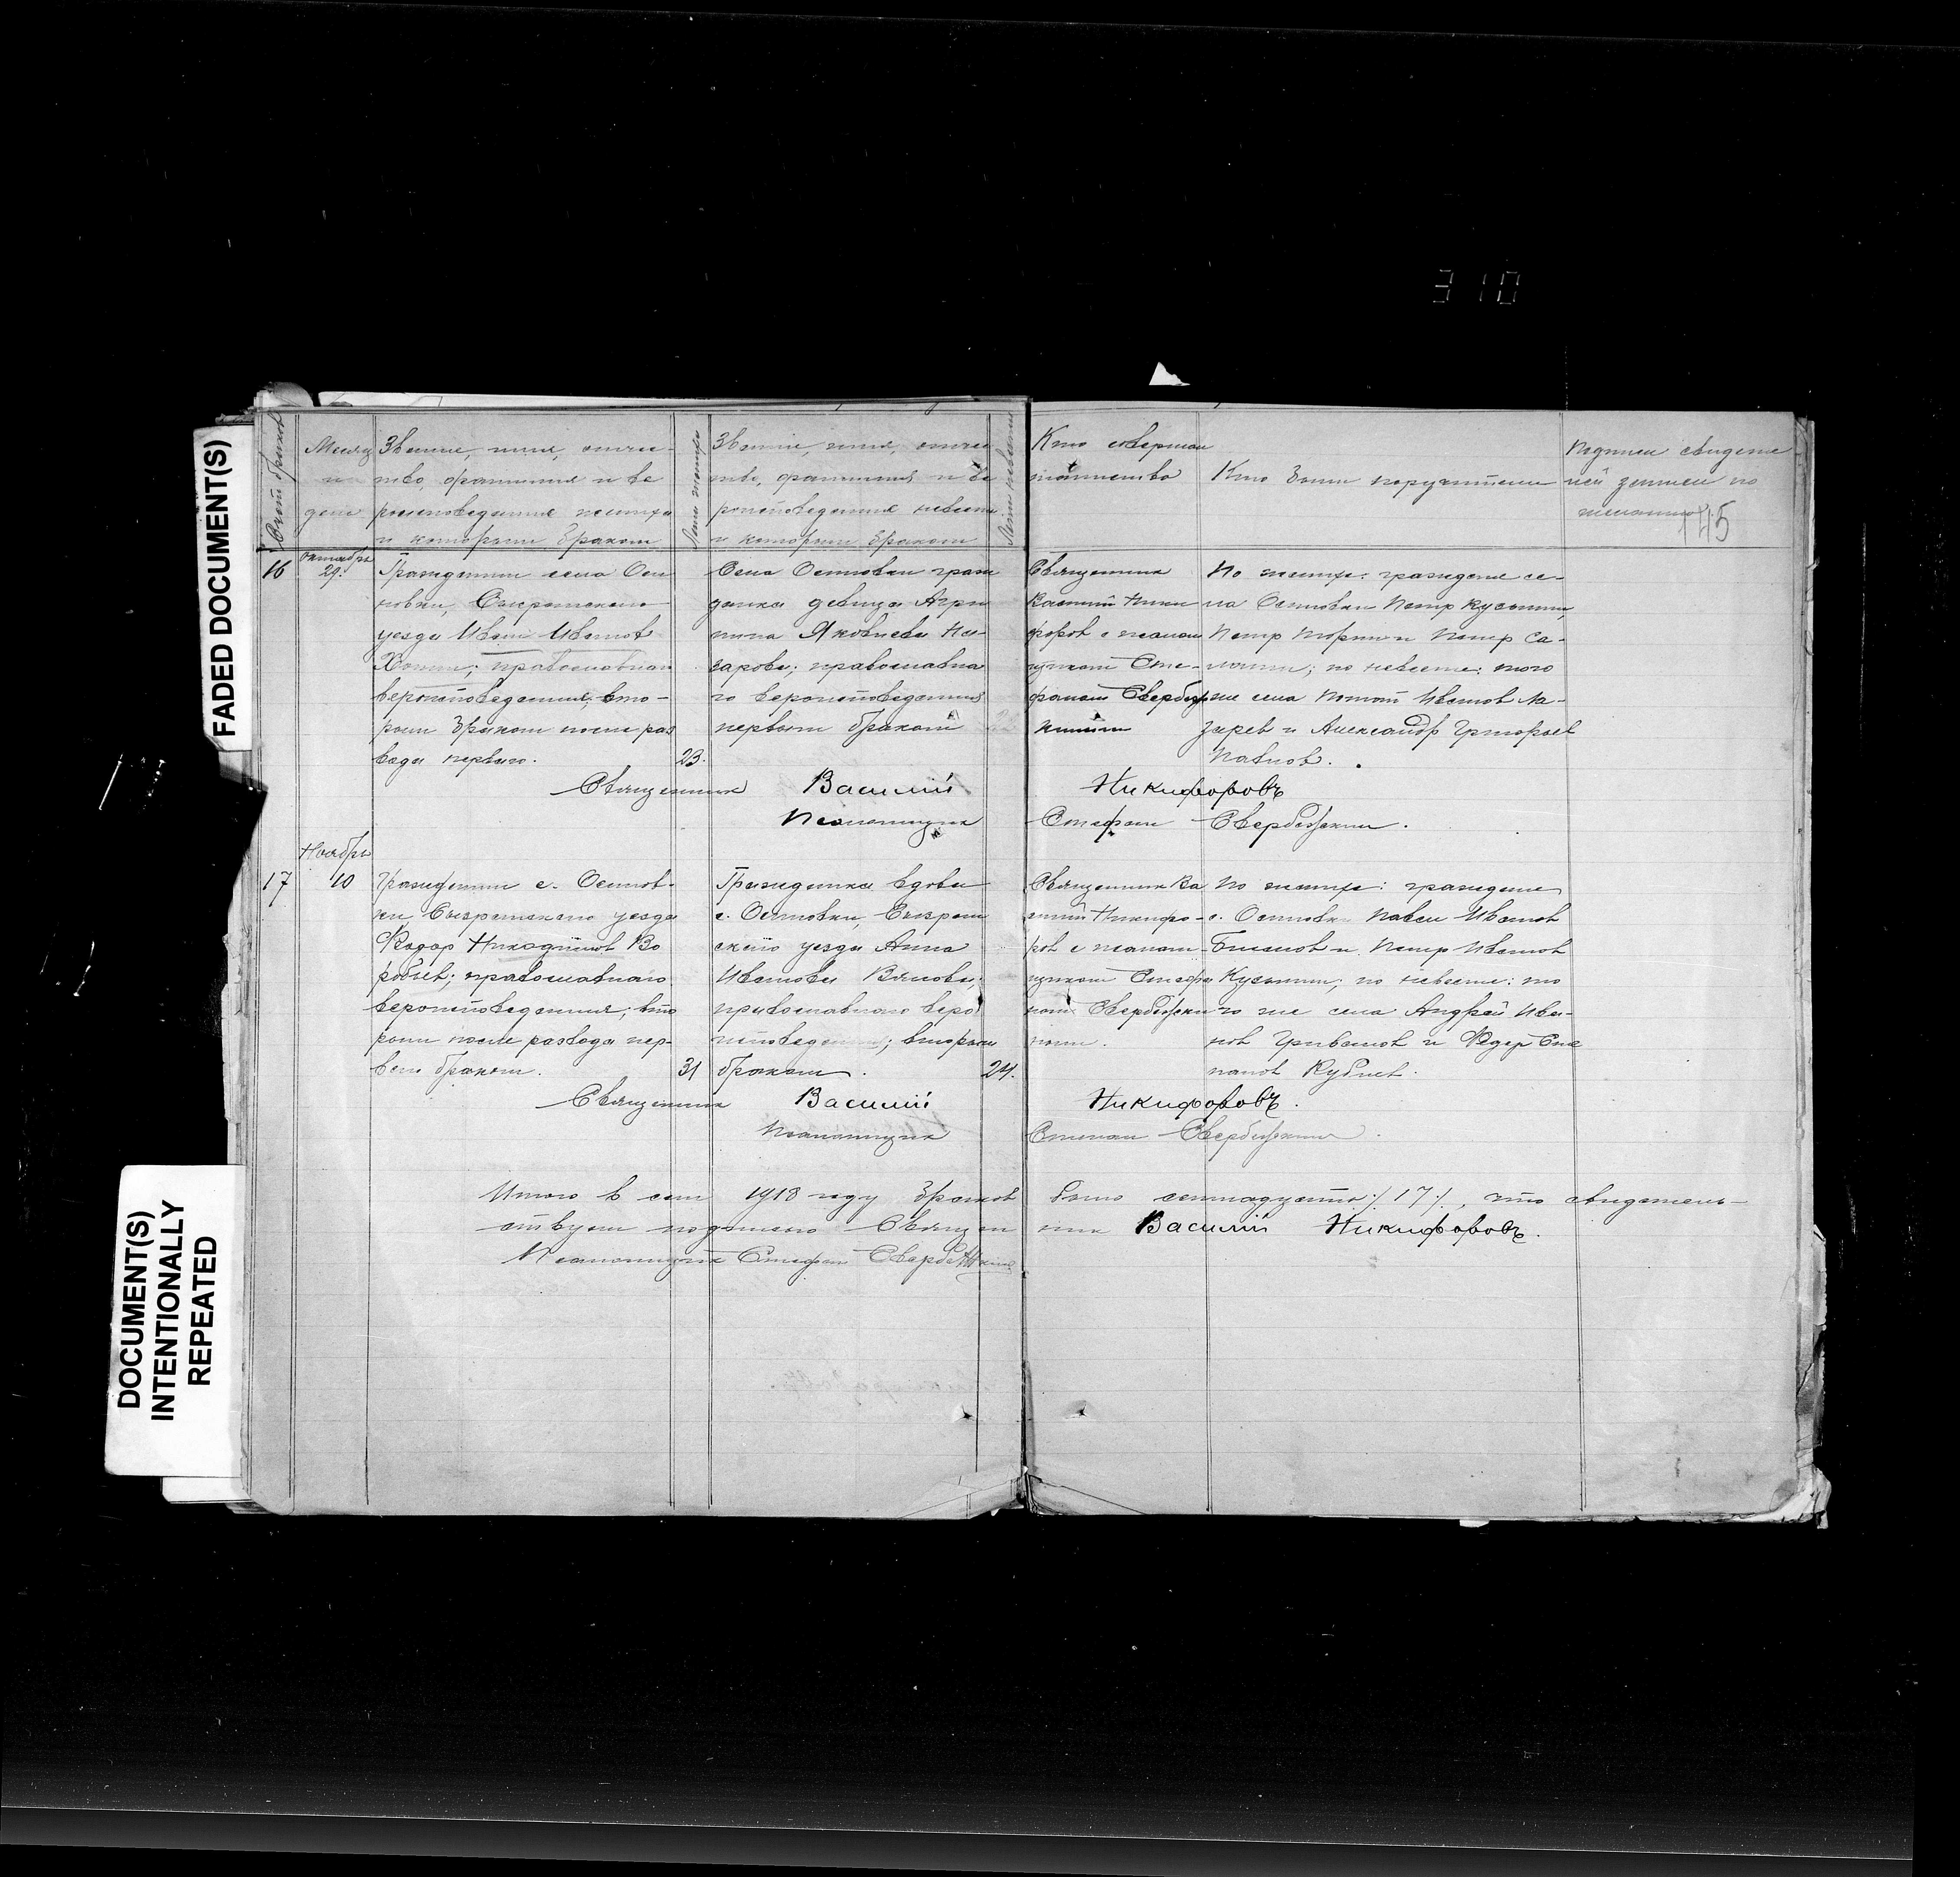 310
FADED DOCUMENT(S)
DOCUMENT(S)
INTENTIONALLY
REPEATED
145
Счет браков
Месяц
и
день
Звание, имя, отче-
ство, фамилия и ве
роисповедание жениха
и которым браком
Лета жениха
Звание, имя, отче
ство, фамилия и ве
роисповедание невесты
и которым браком
Лета невесты
Кто совершал
таинство
Кто были поручители
Подписи свидете
лей записи по
желанию
16
Октябрь
29.
Гражданин села Оси
новки, Сызранского
уезда Иван Иванов
Хонин; православнаго
вероисповедания, вто-
рым браком после раз
вода перваго.
23.
Села Осиновки граж
данка девица Агрип
пина Яковлева На-
зарова; православна
го вероисповедания
первым браком
22
Священник
Василий Ники
форов с псалом
щиком Сте-
фаном Свербеж
киным
По женихе: граждане се-
ла Осиновки Петр Кузьмин,
Петр и Петр Са-
; по невесте: того
же села Иванов Ла-
зарев и Александр Григорьев
Павлов.
Священник Василий Никифоровъ
Псаломщик Стефан Свербежкин.
Ноябрь
17
10
Гражданин с. Осинов-
ки, Сызранского уезда
Федор Никодимов Во
робьев; православнаго
вероисповедания; вто
рым после развода пер-
вым браком.
31
Гражданка вдова
с. Осиновки, Сызран
скаго уезда Анна
Иванова Вялова;
православнаго веро
исповедания; вторым
браком.
24.
Священник Ва
силий Никифо-
ров с псалом-
щиком Стефа
ном Свербежки
ным.
По женихе: граждане
с. Осиновки Павел Иванов
и Петр Иванов
Кузьмин; по невесте: то
го же села Андрей Ива-
нов Грибанов и Федор Сте
панов
Священник Василий Никифоровъ.
Псаломщик Степан Свербежкин.
Итого в сем 1918 году браков было семнадцать /17/, что свидетель-
ствуем подписью Священник Василий Никифоровъ.
Псаломщик Стефан Свербежкин